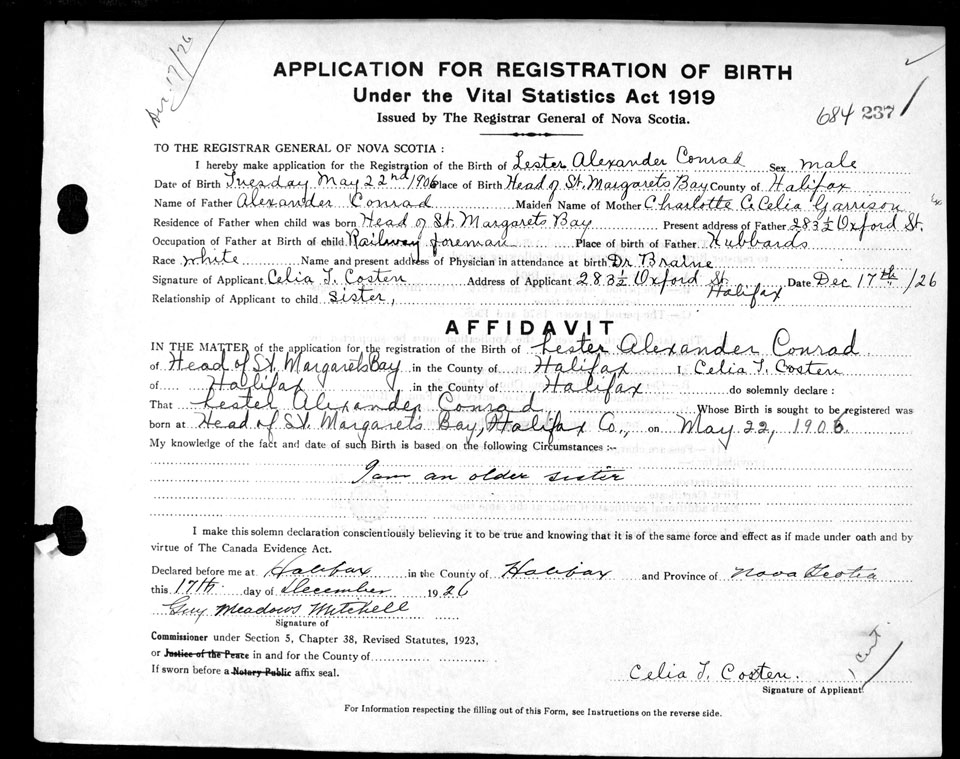 Dec. 17/26
APPLICATION FOR REGISTRATION OF BIRTH
Under the Vital Statistics Act 1919
Issued by The Registrar General of Nova Scotia.
684 237
TO THE REGISTRAR GENERAL OF NOVA SCOTIA :
I hereby make application for the Registration of the Birth of Lester Alexander Conrad Sex male
Date of Birth Tuesday May 22nd 1906 Place of Birth Head of St. Margarets Bay County of Halifax
Name of Father Alexander Conrad Maiden Name of Mother Charlotte C. Celia Garrison
Residence of Father when child was born Head of St. Margarets Bay Present address of Father 283½ Oxford St.
Occupation of Father at Birth of child Railway foreman Place of birth of Father Hubbards
Race white Name and present address of Physician in attendance at birth Dr Braine
Signature of Applicant Celia T. Costen Address of Applicant 283½ Oxford St. Halifax Date Dec 17th /26
Relationship of Applicant to child sister,
AFFIDAVIT
IN THE MATTER of the application for the registration of the Birth of Lester Alexander Conrad
of Head of St. Margarets Bay in the County of Halifax I Celia T. Costen
of Halifax in the County of Halifax do solemnly declare :
That Lester Alexander Conrad Whose Birth is sought to be registered was
born at Head of St. Margarets Bay, Halifax Co., on May 22, 1906.
My knowledge of the fact and date of such Birth is based on the following Circumstances :-
I am an older sister
I make this solemn declaration conscientiously believing it to be true and knowing that it is of the same force and effect as if made under oath and by
virtue of The Canada Evidence Act.
Declared before me at Halifax in the County of Halifax and Province of Nova Scotia
this 17th day of December 1926
Guy Meadows Mitchell
Signature of
Commissioner under Section 5, Chapter 38, Revised Statutes, 1923,
or Justice of the Peace in and for the County of
If sworn before a Notary Public affix seal.
1 Cert.
Celia T. Costen.
Signature of Applicant
For Information respecting the filling out of this Form, see Instructions on the reverse side.